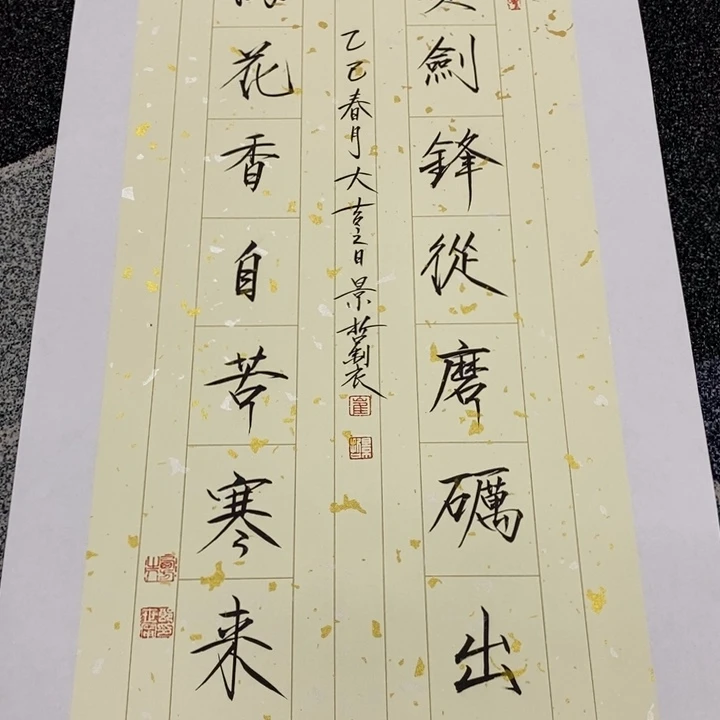 劍鋒從磨礪出
花香自苦寒来
乙巳春月大吉之日景哲製